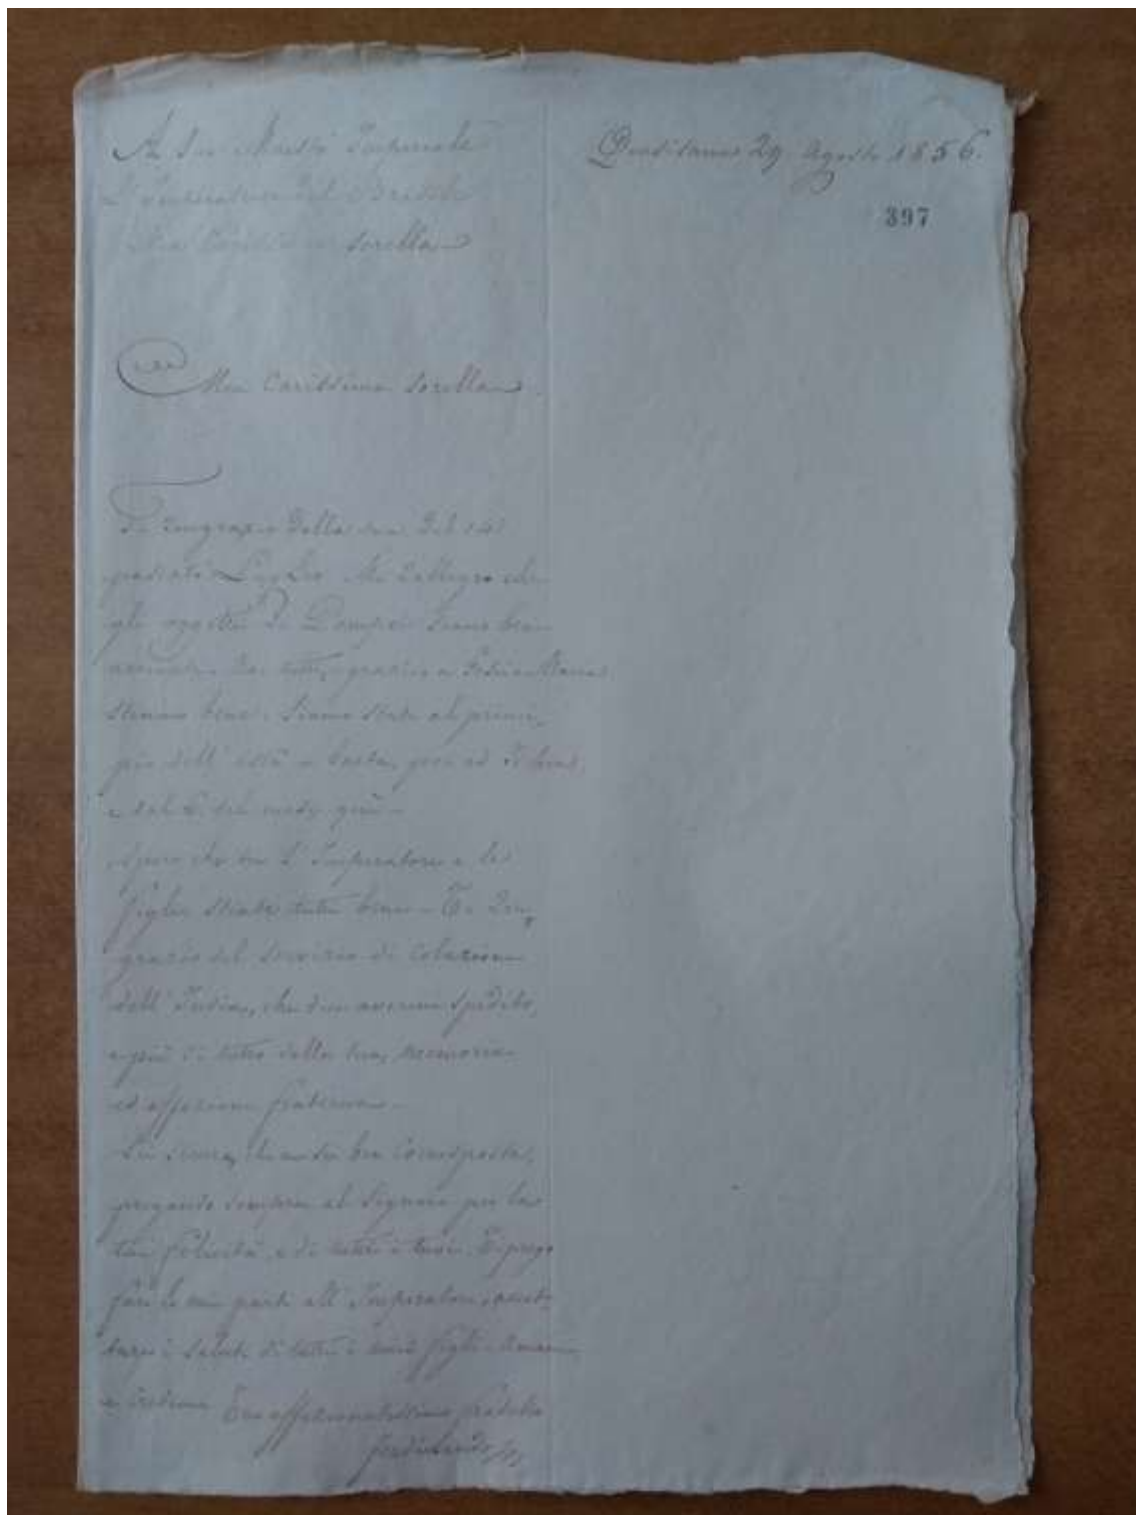 A Sua Maestà Imperiale
L'Imperatrice del Brasile
Mia Carissima Sorella
Quisisana 29 Agosto 1856.
397
Mia Carissima Sorella
Ti ringrazio della tua del 14
passato Luglio. Mi rallegro che
gli oggetti di Pompei siano bene
arrivati. Noi tutti, grazie a Dio
stiamo bene. Siamo stati al princi_
pio dell' està a Caserta, poi ad Ischia,
e dal del qui
Spero che tu L' Imperatore e le
figlie stiate tutti bene. Ti rin_
grazio del servizio di colazione
dell' India, che dici avermi spedito,
e più di tutto della tua memoria
ed affezione fraterna.
Sii sicura, che ne sei ben corrisposta,
pregando sempre il Signore per la
tua felicità, e di tutti i tuoi. Ti prego
fare le mie parti all' Imperatore, accet_
tare i saluti di tutti i miei figli
e credimi Tuo affezionatissimo fratello
Ferdinando